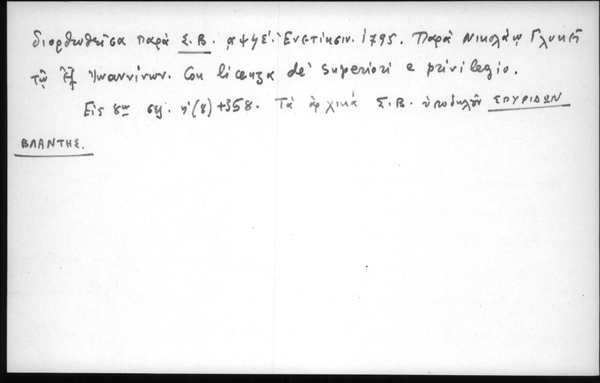 διορθωθεῖσα παρὰ Σ.Β. αψϟε΄. Ἐνετίησιν. 1795. Παρὰ Νικολάῳ Γλυκεῖ
τῷ ἐξ Ἰωαννίνων. Con licenza de' Superiori e privilegio.
Εἰς 8ον σελ. η΄(8)+358. Τὰ ἀρχικά Σ.Β. ὑποδηλοῦν ΣΠΥΡΙΔΩΝ
ΒΛΑΝΤΗΣ.